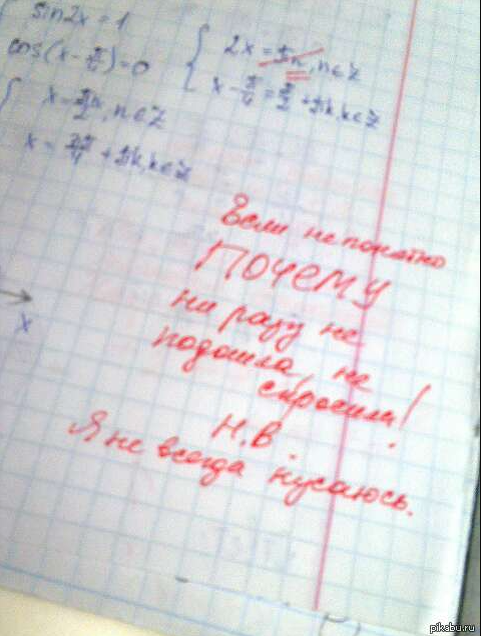 sin2x = 1
cos(x - π/4) = 0
2x = πn, n∈Z
x - π/4 = π/2 + πk, k∈Z
x = πn/2, n∈Z
x = 3π/4 + πk, k∈Z
Если непонятно
ПОЧЕМУ
ни разу не
подошла, не
спросила!
Н.В.
Я не всегда кусаюсь.
x
pikabu.ru